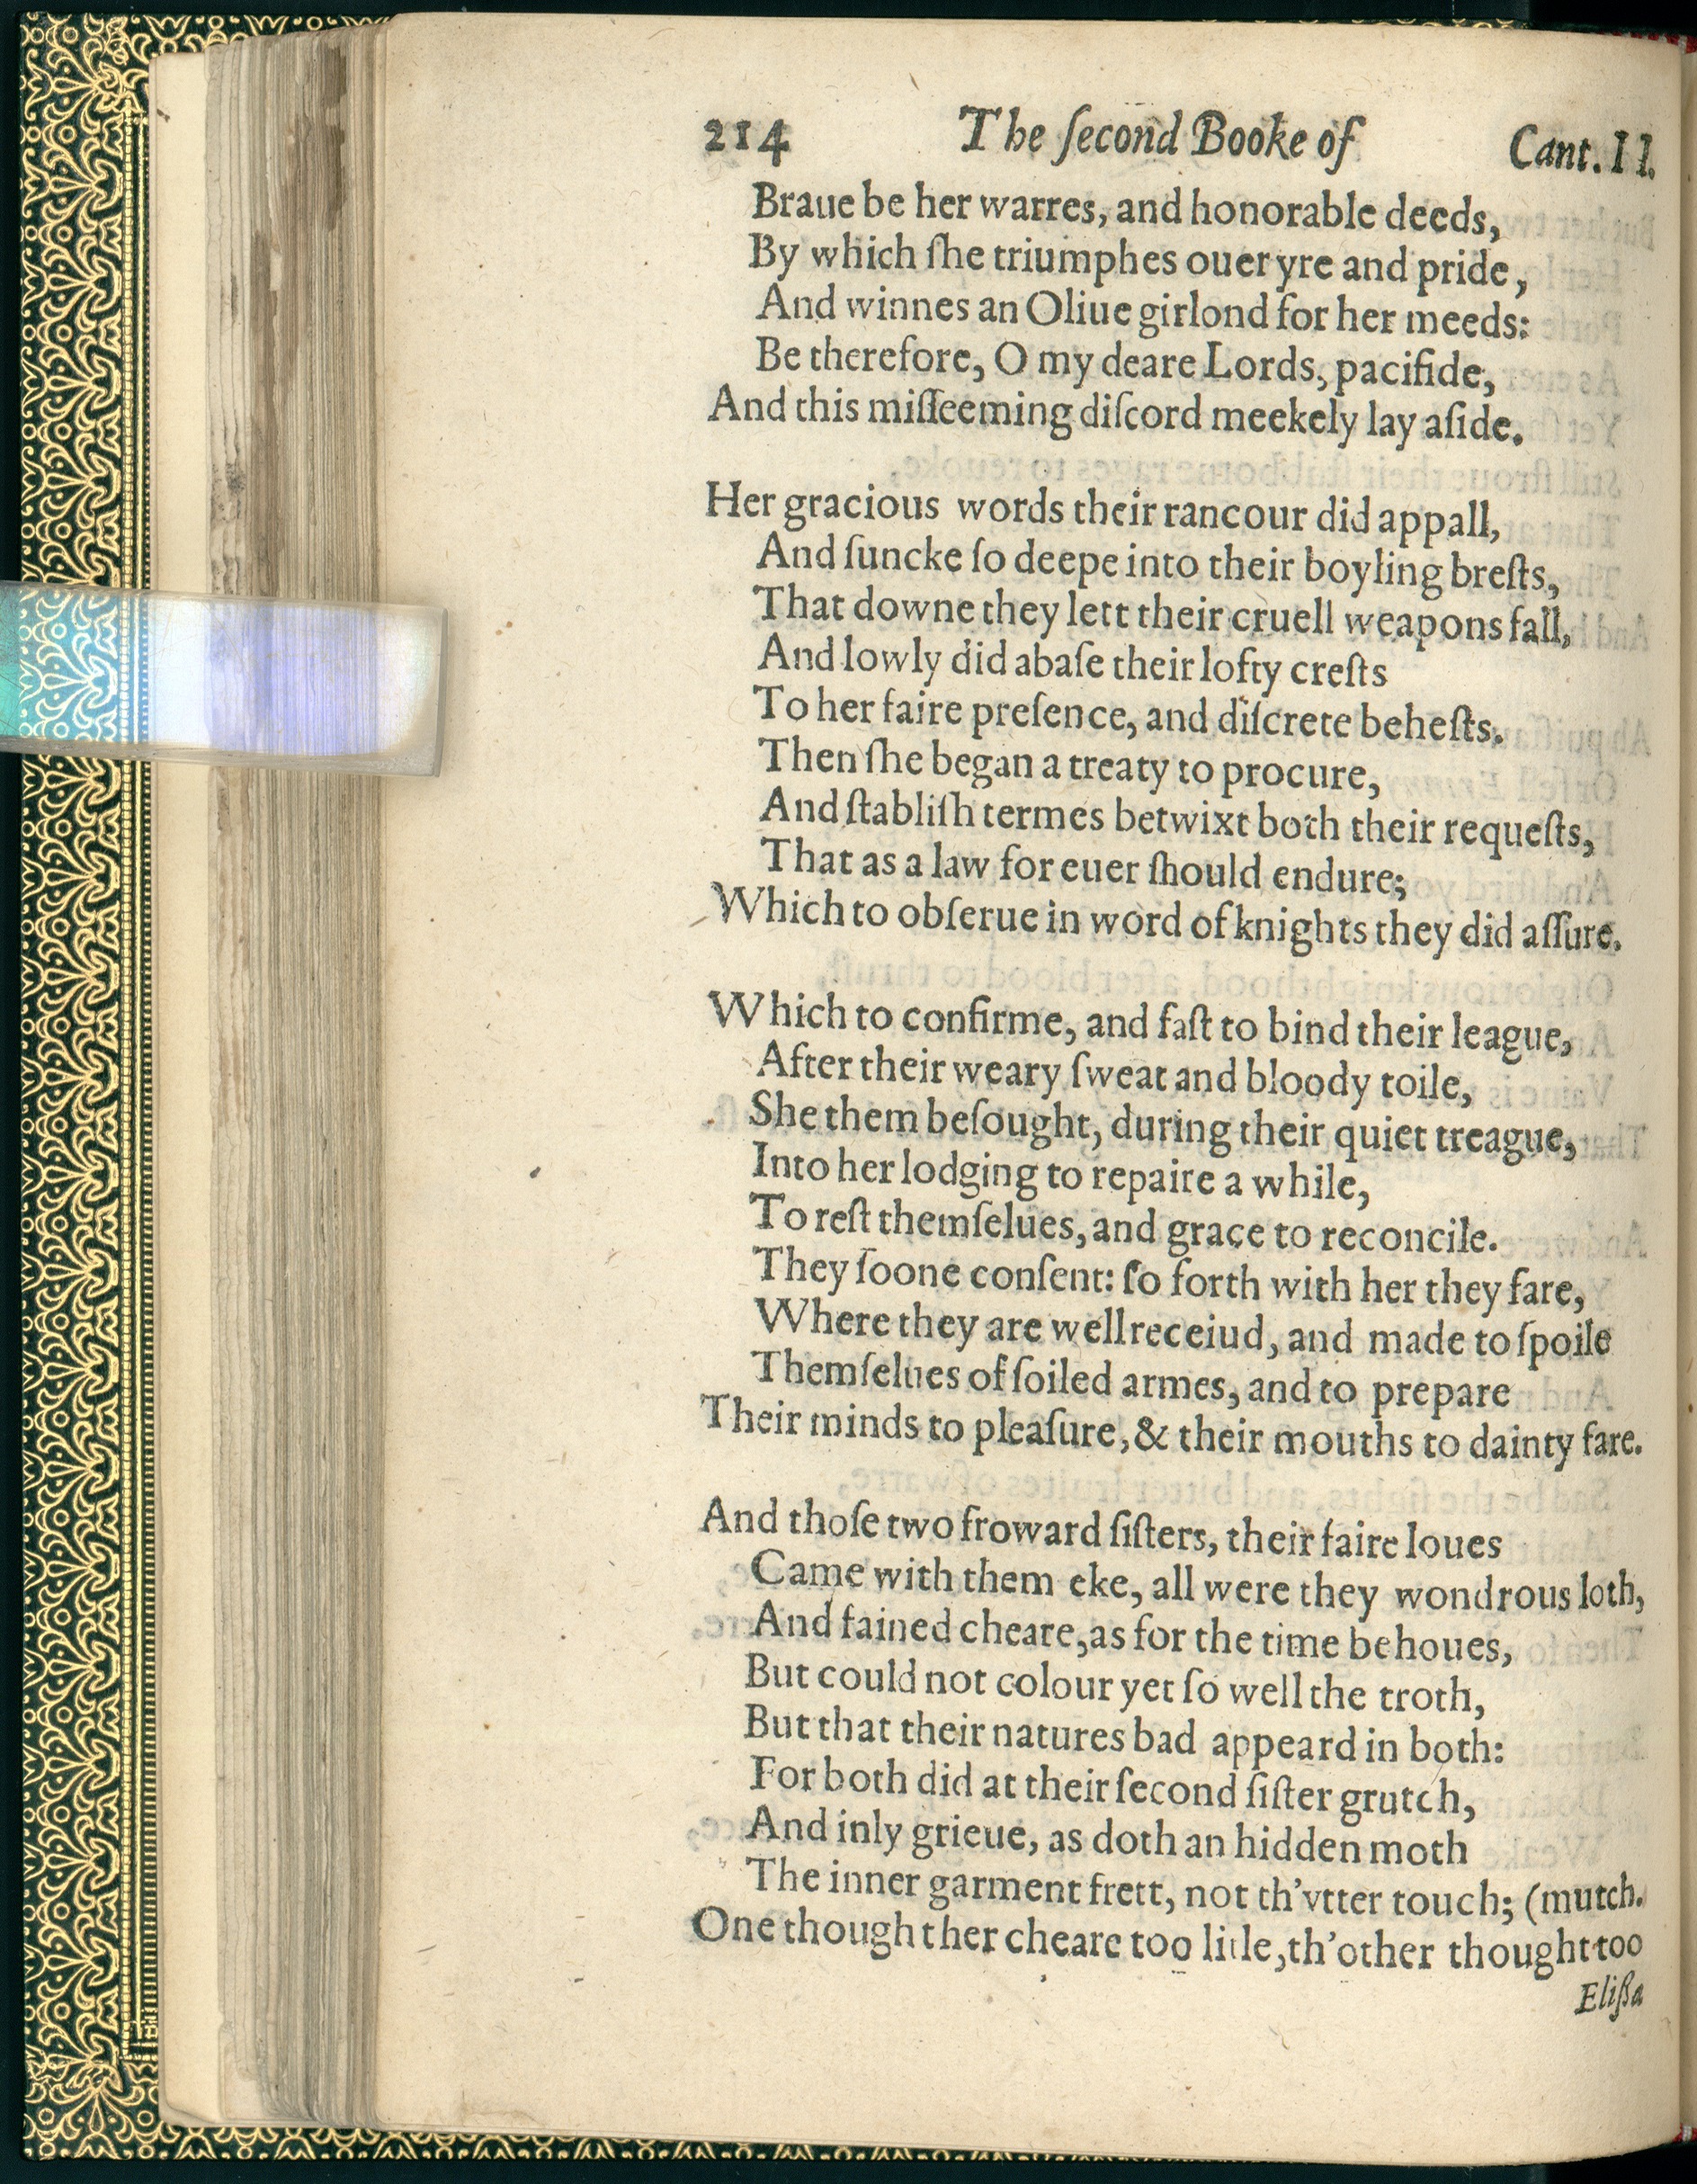 214 The ſecond Booke of Cant. II.
Braue be her warres, and honorable deeds,
By which ſhe triumphes ouer yre and pride,
And winnes an Oliue girlond for her meeds:
Be therefore, O my deare Lords, pacifide,
And this miſſeeming diſcord meekely lay aſide.
Her gracious words their rancour did appall,
And ſuncke ſo deepe into their boyling breſts,
That downe they lett their cruell weapons fall,
And lowly did abaſe their lofty creſts
To her faire preſence, and diſcrete beheſts.
Then ſhe began a treaty to procure,
And ſtabliſh termes betwixt both their requeſts,
That as a law for euer ſhould endure;
Which to obſerue in word of knights they did aſſure.
Which to confirme, and faſt to bind their league,
After their weary ſweat and bloody toile,
She them beſought, during their quiet treague,
Into her lodging to repaire a while,
To reſt themſelues, and grace to reconcile.
They ſoone conſent: ſo forth with her they fare,
Where they are well receiud, and made to ſpoile
Themſelues of ſoiled armes, and to prepare
Their minds to pleaſure, & their mouths to dainty fare.
And thoſe two froward ſiſters, their faire loues
Came with them eke, all were they wondrous loth,
And fained cheare, as for the time behoues,
But could not colour yet ſo well the troth,
But that their natures bad appeard in both:
For both did at their ſecond ſiſter grutch,
And inly grieue, as doth an hidden moth
The inner garment frett, not th'vtter touch; (mutch.
One thought her cheare too litle, th'other thought too
Elißa